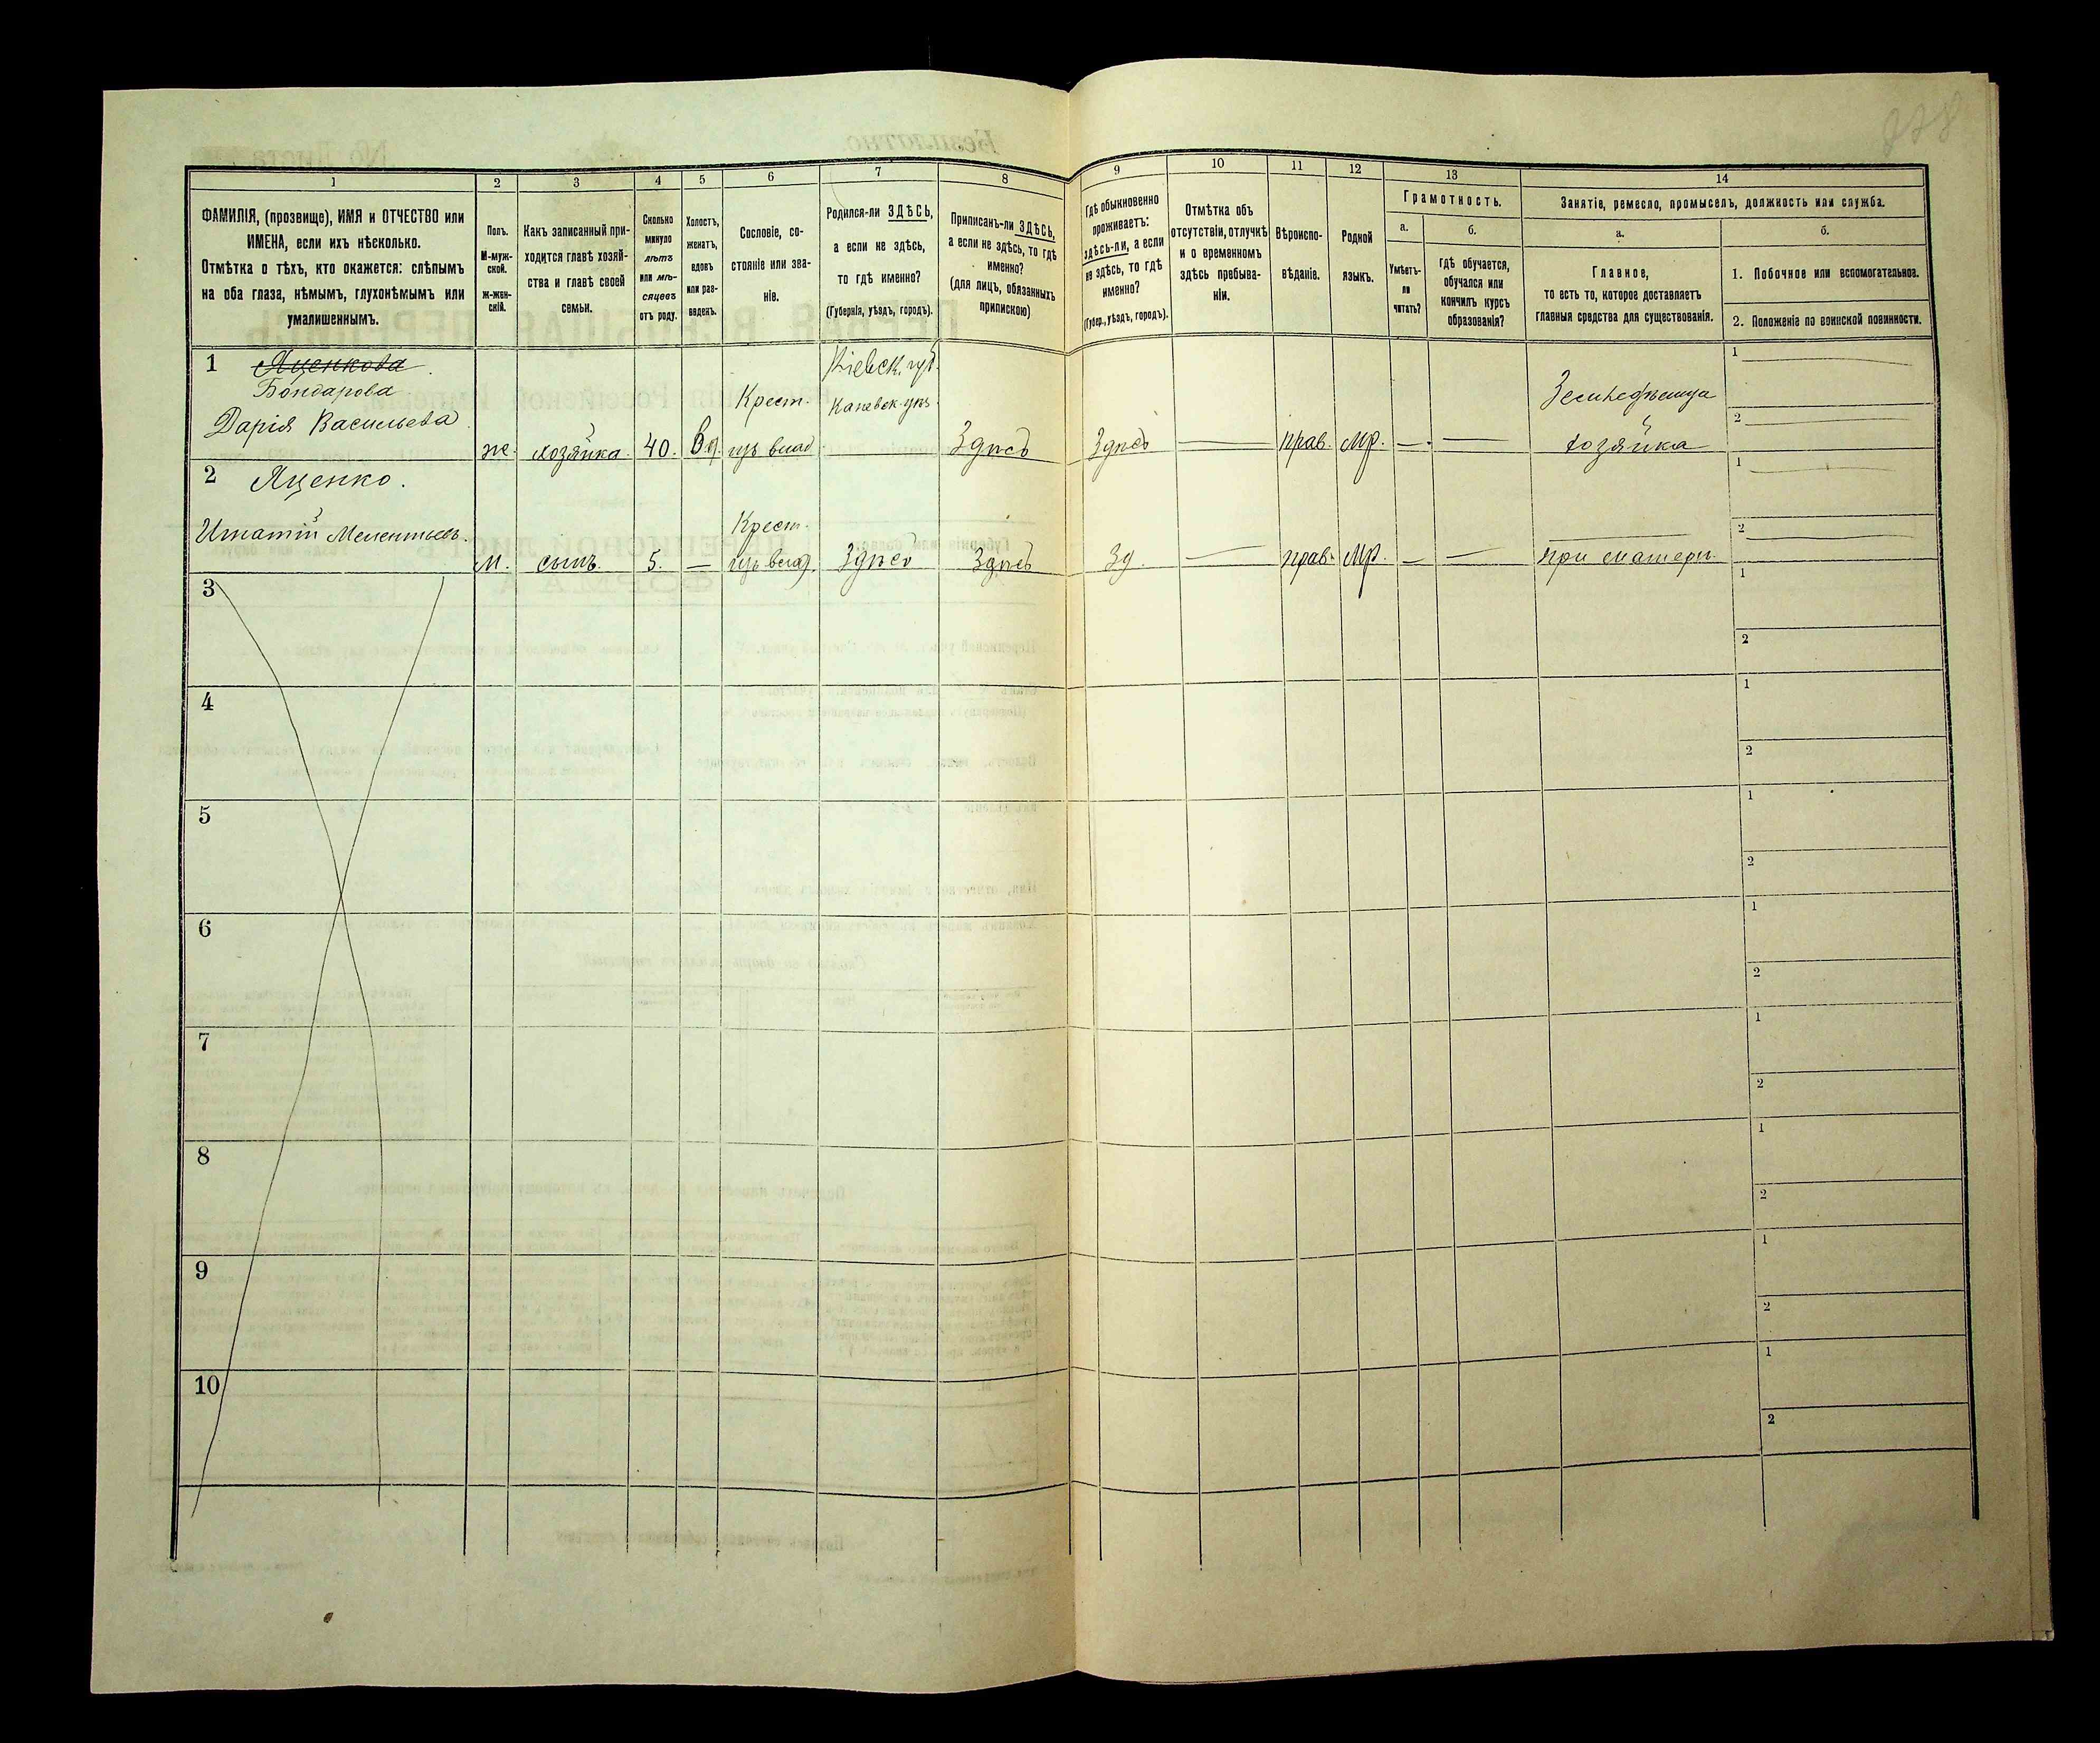 1 2 3 4 5 6 7 8 9 10 11 12 13 14
ФАМИЛІЯ, (прозвище), ИМЯ и ОТЧЕСТВО или
ИМЕНА, если ихъ нѣсколько.
Отмѣтка о тѣхъ, кто окажется: слѣпымъ
на оба глаза, нѣмымъ, глухонѣмымъ или
умалишеннымъ.
Полъ.
М-муж-
ской.
ж-жен-
скій.
Какъ записанный при-
ходится главѣ хозяй-
ства и главѣ своей
семьи.
Сколько
минуло
лѣтъ
или мѣ-
сяцевъ
отъ роду.
Холостъ,
женатъ,
вдовъ
или раз-
веденъ.
Сословіе, со-
стояніе или зва-
ніе.
Родился-ли ЗДѢСЬ,
а если не здѣсь,
то гдѣ именно?
(Губернія, уѣздъ, городъ).
Приписанъ-ли ЗДѢСЬ,
а если не здѣсь, то гдѣ
именно?
(для лицъ, обязанныхъ
припискою)
Гдѣ обыкновенно
проживаетъ:
здѣсь-ли, а если
не здѣсь, то гдѣ
именно?
(Губер., уѣздъ, городъ).
Отмѣтка объ
отсутствіи, отлучкѣ
и о временномъ
здѣсь пребыва-
ніи.
Вѣроиспо-
вѣданіе.
Родной
языкъ.
Грамотность.
а.
Умѣетъ-
ли
читать?
б.
гдѣ обучается,
обучался или
кончилъ курсъ
образованія?
Занятіе, ремесло, промыселъ, должность или служба.
а.
Главное,
то есть то, которое доставляетъ
главныя средства для существованія.
б.
1. Побочное или вспомогательное.
2. Положеніе по воинской повинности.
1 Яценкова
Бондарова
Дарія Васильева
ж. хозяйка. 40. Вд.
Крест.
изъ влад
Кіевск. губ.
Каневск. уѣз.
Здѣсь Здѣсь — прав. Мр. — —
Земледѣлица
хозяйка
1 —
2 —
2 Яценко.
Игнатій Мелентьевъ.
м. сынъ. 5. —
Крест.
изъ влад.
Здѣсь Здѣсь Зд. — прав. Мр. — —
при матери.
1 —
2 —
3
1
2
4
1
2
5
1
2
6
1
2
7
1
2
8
1
2
9
1
2
10
1
2